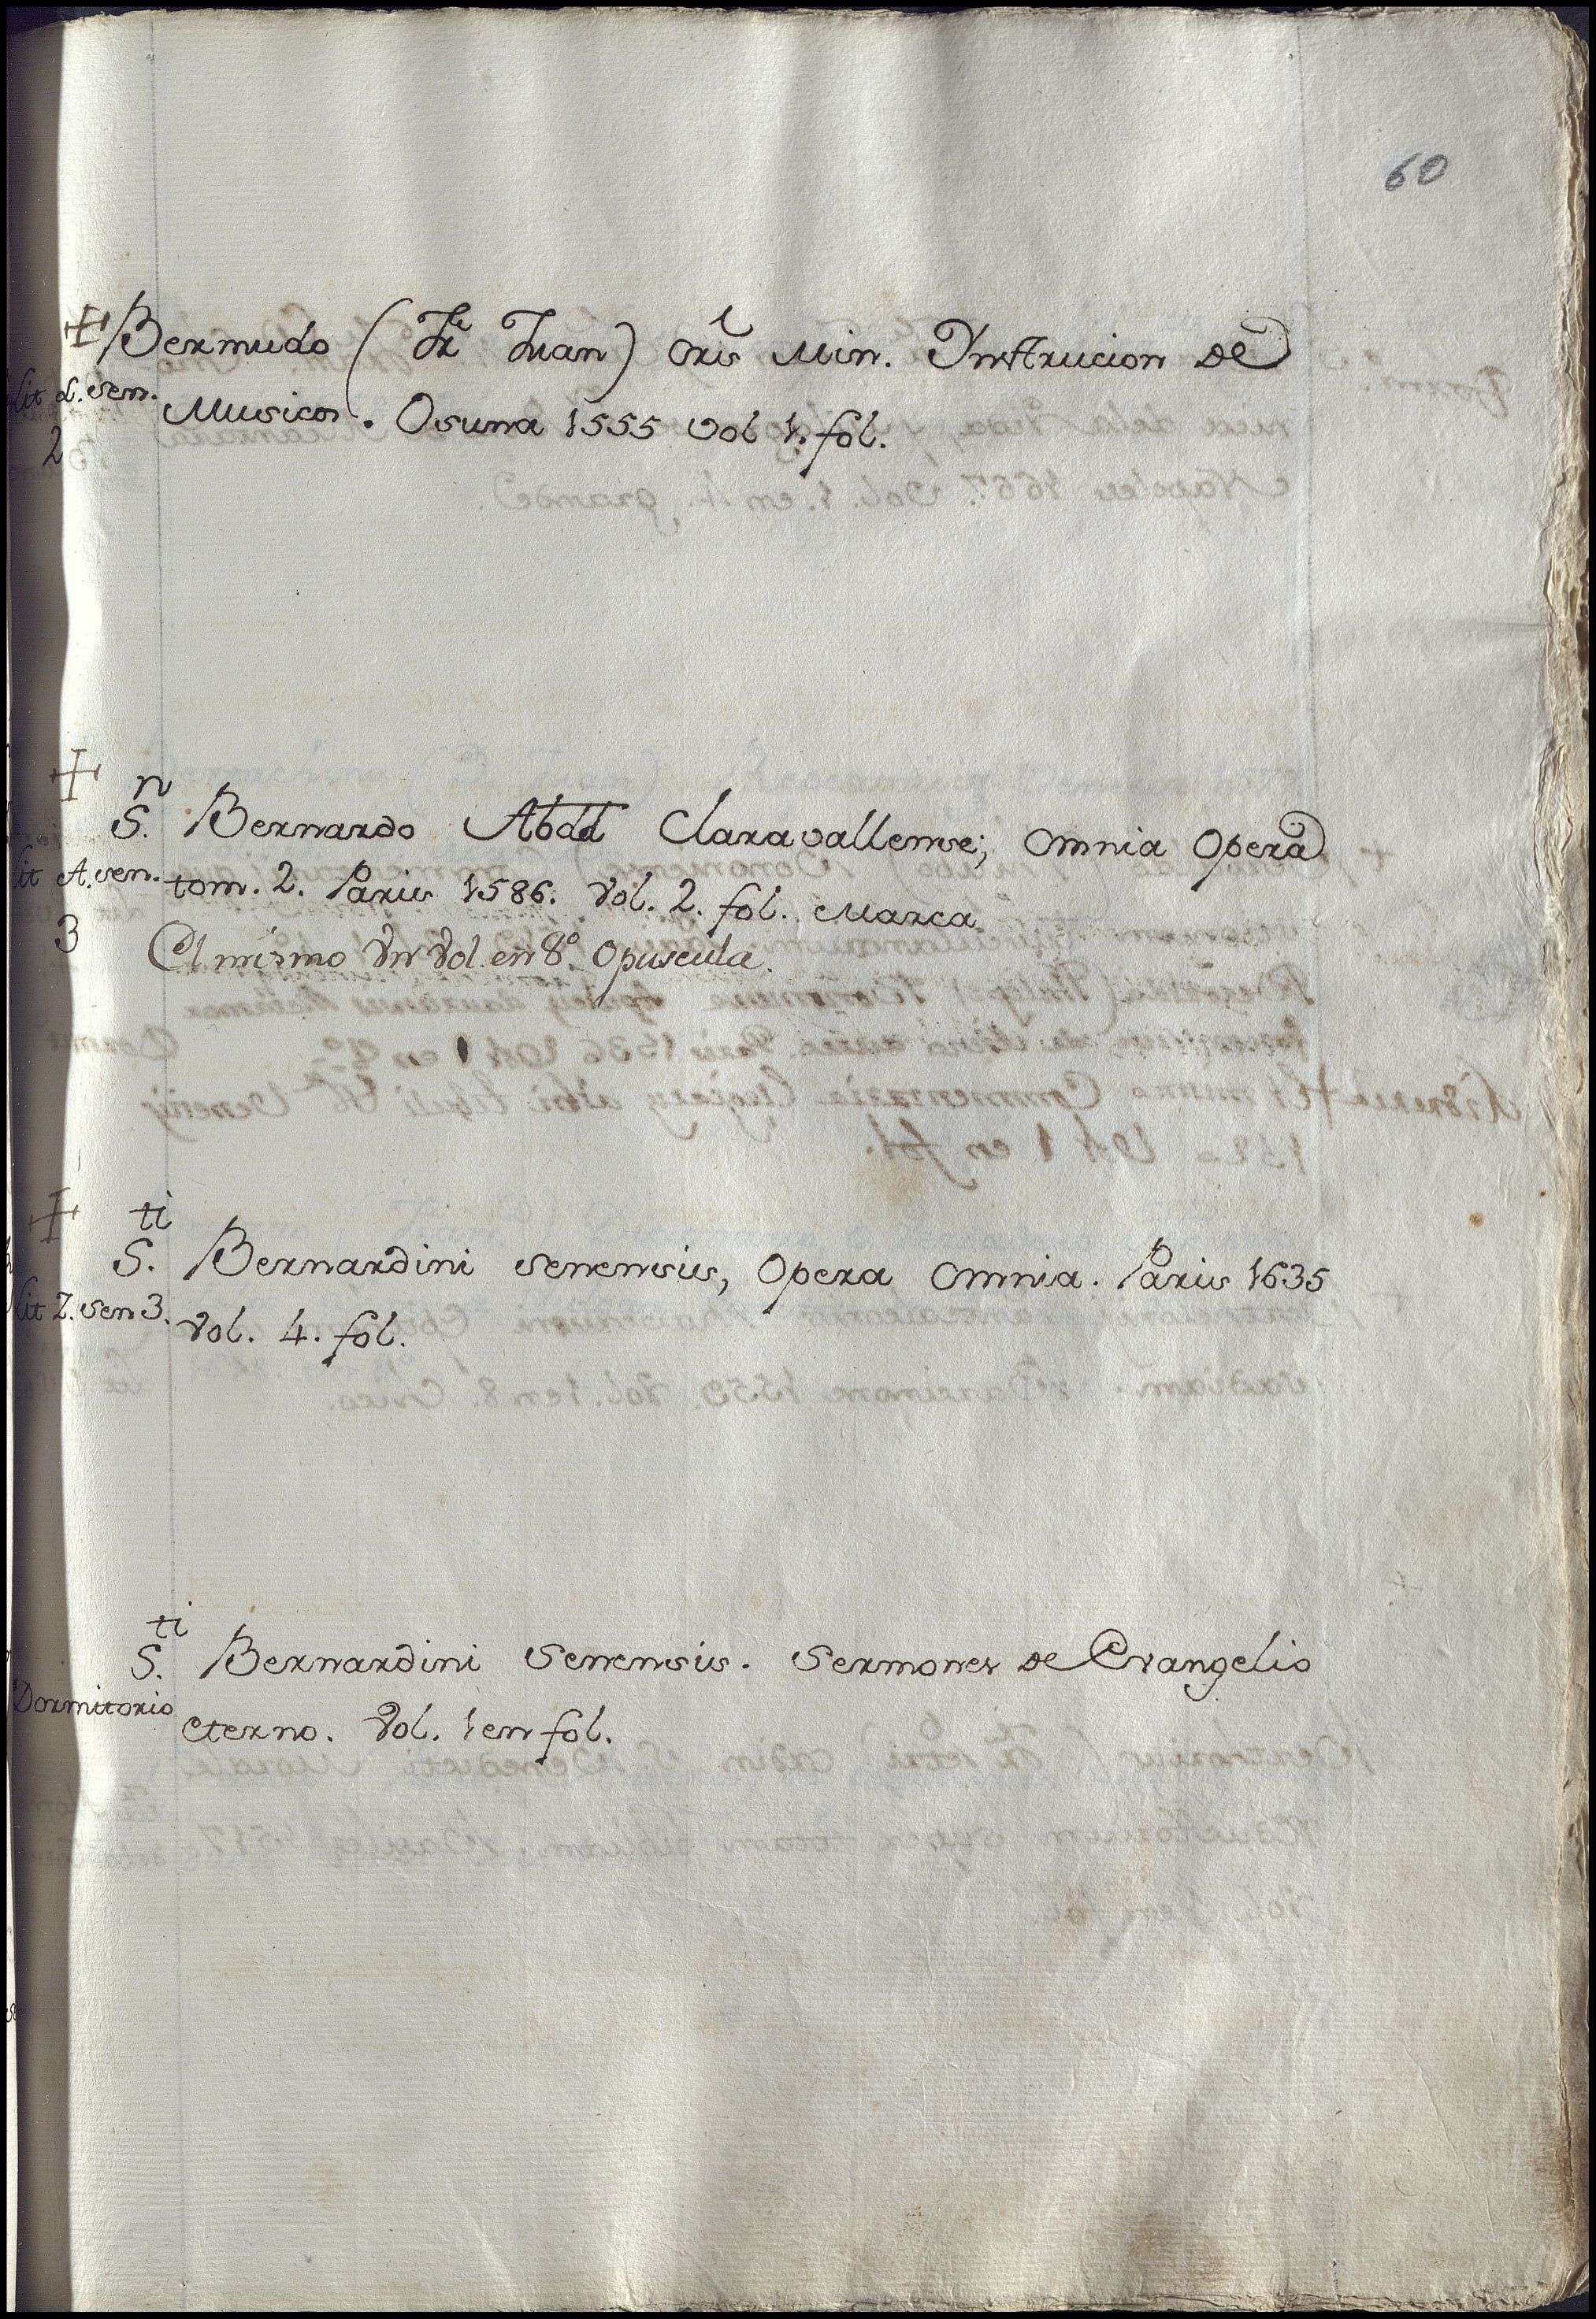 60
+ Bermudo (Fr Juan) Oris Min. Ynstrucion de
Lit d. sen. Musicos. Osuna 1555 vol 1. fol.
2
+
Sn. Bernardo Abdd Claravallense; omnia opera
Lit A. sen. tom. 2. Paris 1586. Vol. 2. fol. Marca
3 El mismo Vn Vol. en 8º opuscula.
+
Sti. Bernardini senensis, opera omnia. Paris 1635
Lit Z. sen 3. Vol. 4. fol.
Sti. Bernardini senensis. Sermones de Evangelio
Dormitorio eterno. Vol. 1 en fol.